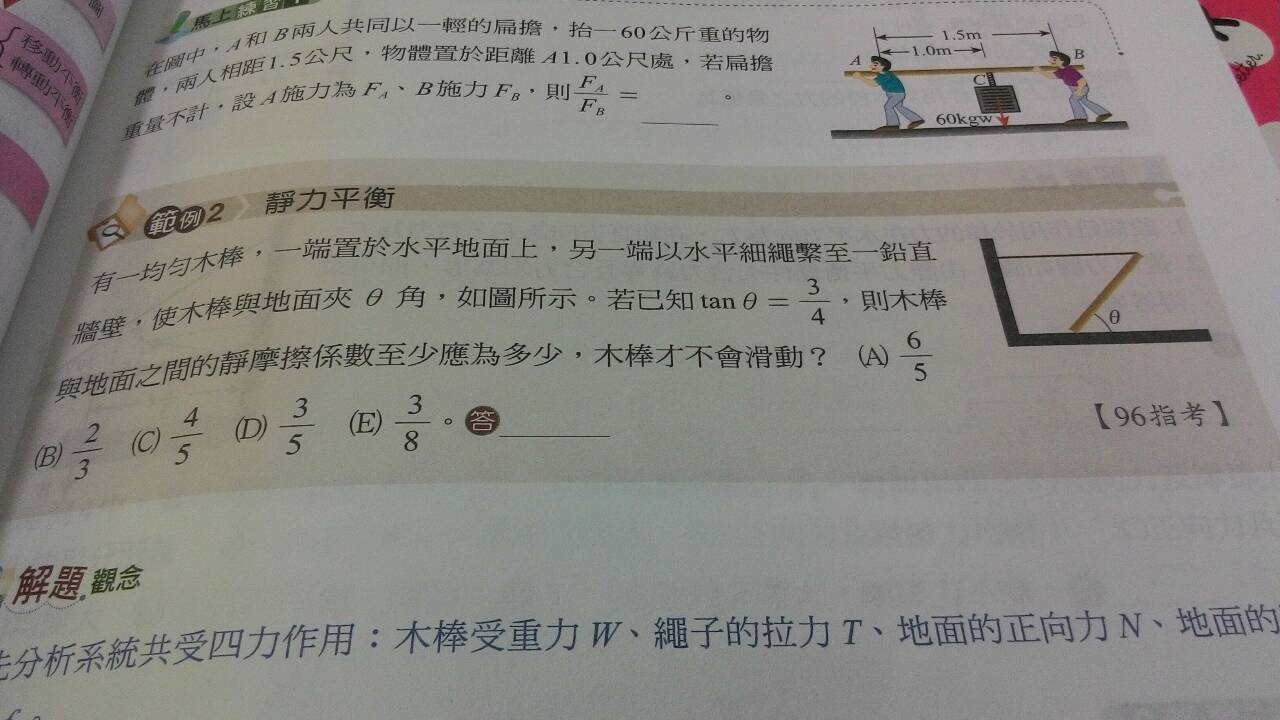 馬上練習1
在圖中，A和B兩人共同以一輕的扁擔，抬一60公斤重的物
體，兩人相距1.5公尺，物體置於距離A1.0公尺處，若扁擔
重量不計，設A施力為F_A、B施力F_B，則F_A/F_B=______。
1.5m
1.0m
A
B
C
60kgw
移動不衡
轉動不衡
範例2 靜力平衡
有一均勻木棒，一端置於水平地面上，另一端以水平細繩繫至一鉛直
牆壁，使木棒與地面夾 θ 角，如圖所示。若已知tan θ = 3/4，則木棒
與地面之間的靜摩擦係數至少應為多少，木棒才不會滑動？ (A) 6/5
(B) 2/3 (C) 4/5 (D) 3/5 (E) 3/8。答______
θ
【96指考】
解題觀念
分析系統共受四力作用：木棒受重力W、繩子的拉力T、地面的正向力N、地面的